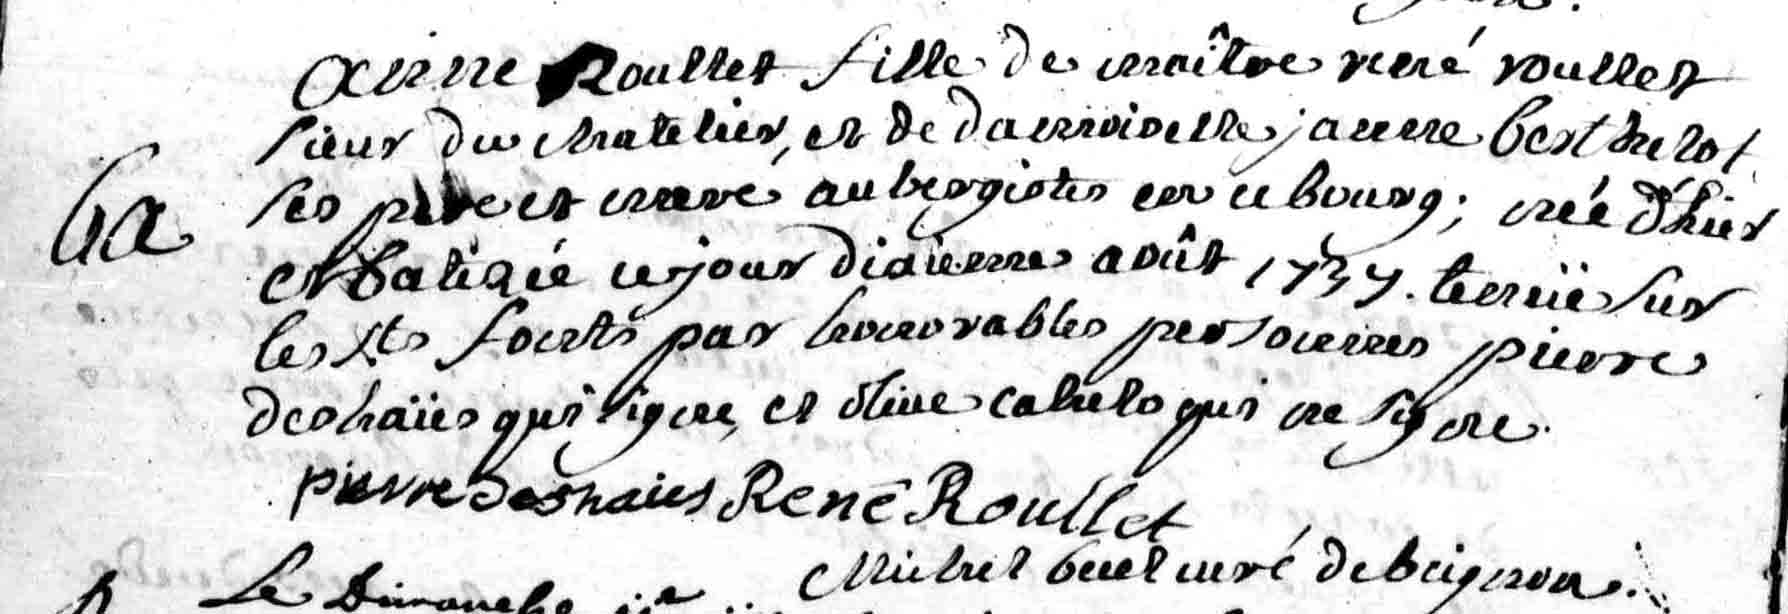 anne Roullet fille de maître rené roullet
sieur du chatelier, et de damoiselle janne berthelot
ses pere et mere aubergistes en ce bourg; née d'hier
ba
et batisée ce jour dixieme août 1737. tenüe sur
les sts fonts par honorables personnes pierre
deshaïes qui signe, et olive cahelo qui ne signe.
pierre deshaies René Roullet
Michel curé de beignon.
Le Dimanche